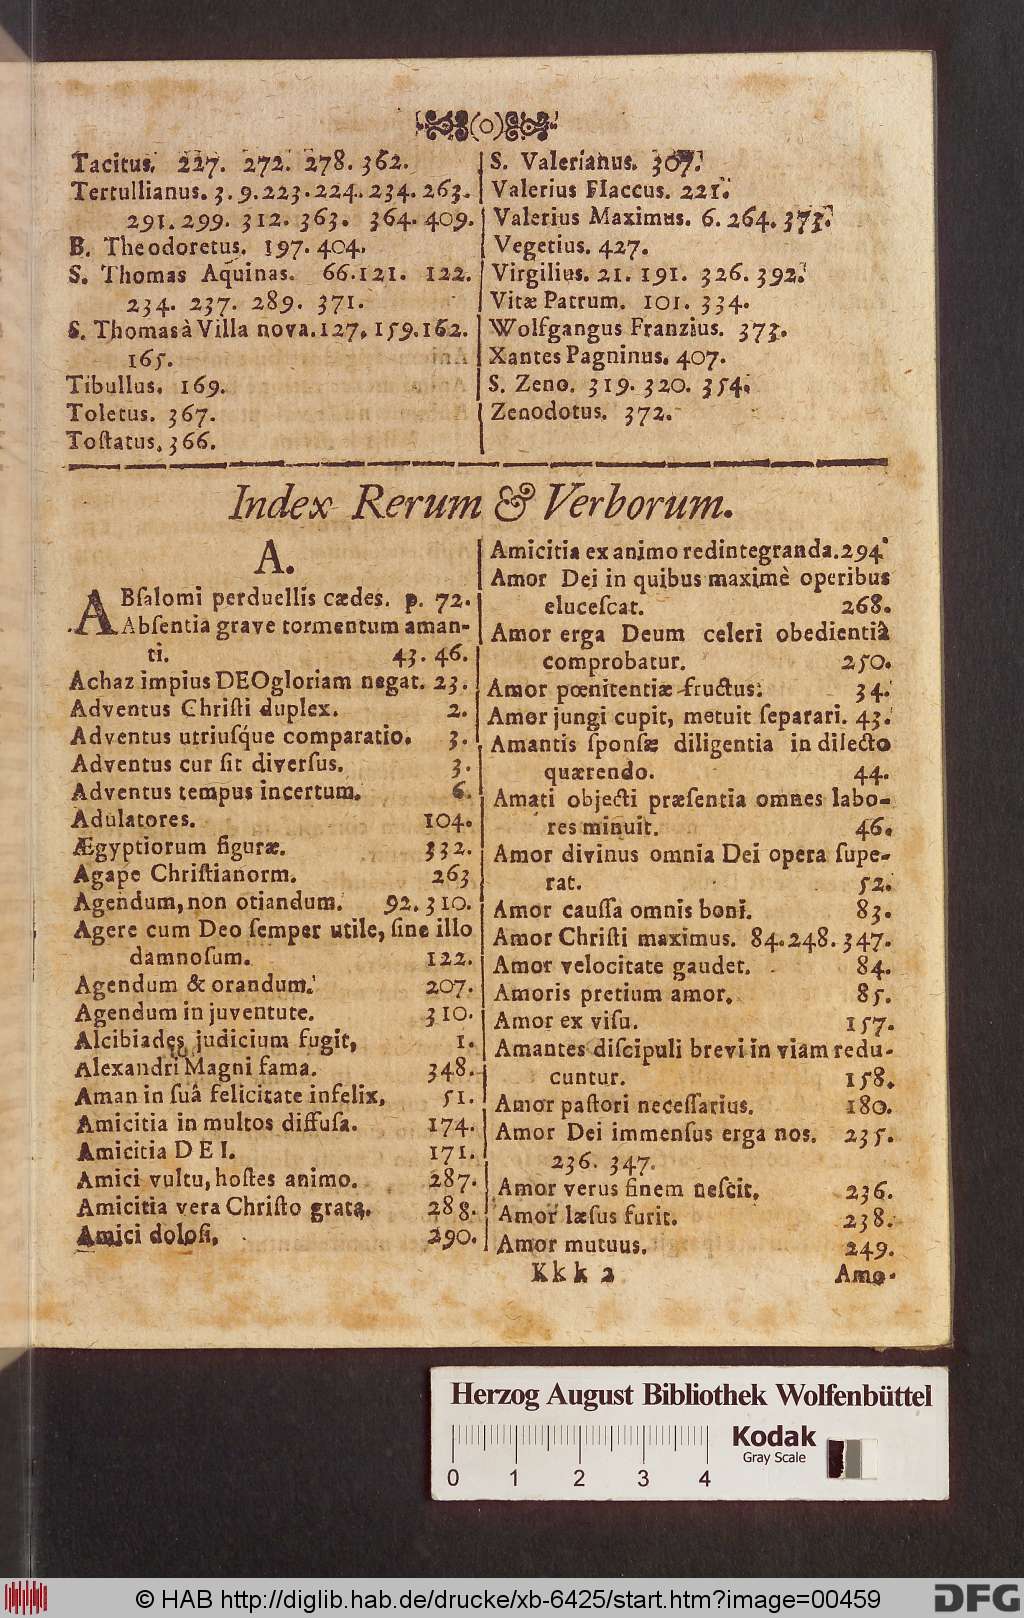 Tacitus. 227. 272. 278. 362.
Tertullianus. 3. 9. 223. 224. 234. 263.
291. 299. 312. 363. 364. 409.
B. Theodoretus. 197. 404.
S. Thomas Aquinas. 66. 121. 122.
234. 237. 289. 371.
S. Thomas à Villa nova. 127. 159. 162.
165.
Tibullus. 169.
Toletus. 367.
Toſtatus. 366.
S. Valerianus. 307.
Valerius Flaccus. 221.
Valerius Maximus. 6. 264. 373.
Vegetius. 427.
Virgilius. 21. 191. 326. 392.
Vitæ Patrum. 101. 334.
Wolfgangus Franzius. 373.
Xantes Pagninus. 407.
S. Zeno. 319. 320. 354.
Zenodotus. 372.
Index Rerum & Verborum.
A.
ABſalomi perduellis cædes. p. 72.
Abſentia grave tormentum aman-
ti. 43. 46.
Achaz impius DEO gloriam negat. 23.
Adventus Chriſti duplex. 2.
Adventus utriuſq́ue comparatio. 3.
Adventus cur ſit diverſus. 3.
Adventus tempus incertum. 6.
Adulatores. 104.
Ægyptiorum figuræ. 332.
Agape Chriſtianorm. 263
Agendum, non otiandum. 92. 310.
Agere cum Deo ſemper utile, ſine illo
damnoſum. 122.
Agendum & orandum. 207.
Agendum in juventute. 310.
Alcibiades judicium fugit, 1.
Alexandri Magni fama. 348.
Aman in ſuâ felicitate infelix. 51.
Amicitia in multos diffuſa. 174.
Amicitia DEI. 171.
Amici vultu, hoſtes animo. 287.
Amicitia vera Chriſto grata. 288.
Amici doloſi. 290.
Amicitia ex animo redintegranda. 294
Amor Dei in quibus maximè operibus
eluceſcat. 268.
Amor erga Deum celeri obedientiâ
comprobatur. 250.
Amor pœnitentiæ fructus. 34.
Amor jungi cupit, metuit ſeparari. 43.
Amantis ſponſæ diligentia in dilecto
quærendo. 44.
Amati objecti præſentia omnes labo-
res minuit. 46.
Amor divinus omnia Dei opera ſupe-
rat. 52.
Amor cauſſa omnis boni. 83.
Amor Chriſti maximus. 84. 248. 347.
Amor velocitate gaudet. 84.
Amoris pretium amor. 85.
Amor ex viſu. 157.
Amantes diſcipuli brevi in viam redu-
cuntur. 158.
Amor paſtori neceſſarius. 180.
Amor Dei immenſus erga nos. 235.
236. 347.
Amor verus finem neſcit. 236.
Amor læſus furit. 238.
Amor mutuus. 249.
Kkk 2 Amo-
Herzog August Bibliothek Wolfenbüttel
Kodak
Gray Scale
0 1 2 3 4
© HAB http://diglib.hab.de/drucke/xb-6425/start.htm?image=00459
DFG